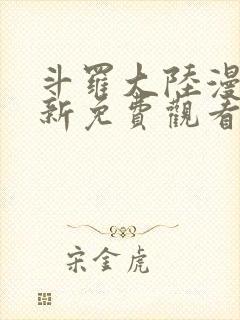 斗羅大陸漫
新免費觀看
宋金虎